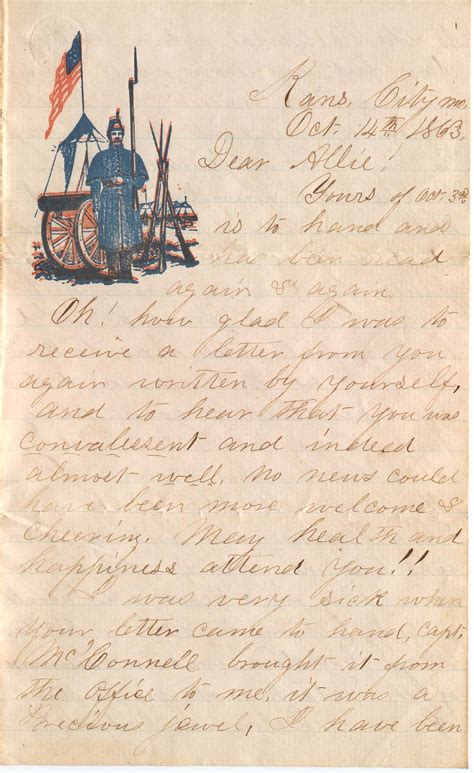 Kans. City, mo,
Oct. 14th 1863.
Dear Allie!
Yours of Oct. 3rd
is to hand and
has been read
again & again
Oh! how glad I was to
receive a letter from you
again written by yourself,
and to hear that you was
convalessent and indeed
almost well. No news could
have been more welcome &
cheering. May health and
happiness attend you!!
I was very sick when
your letter came to hand, Capt.
McConnell brought it from
the office to me, it was a
precious jewel, I have been